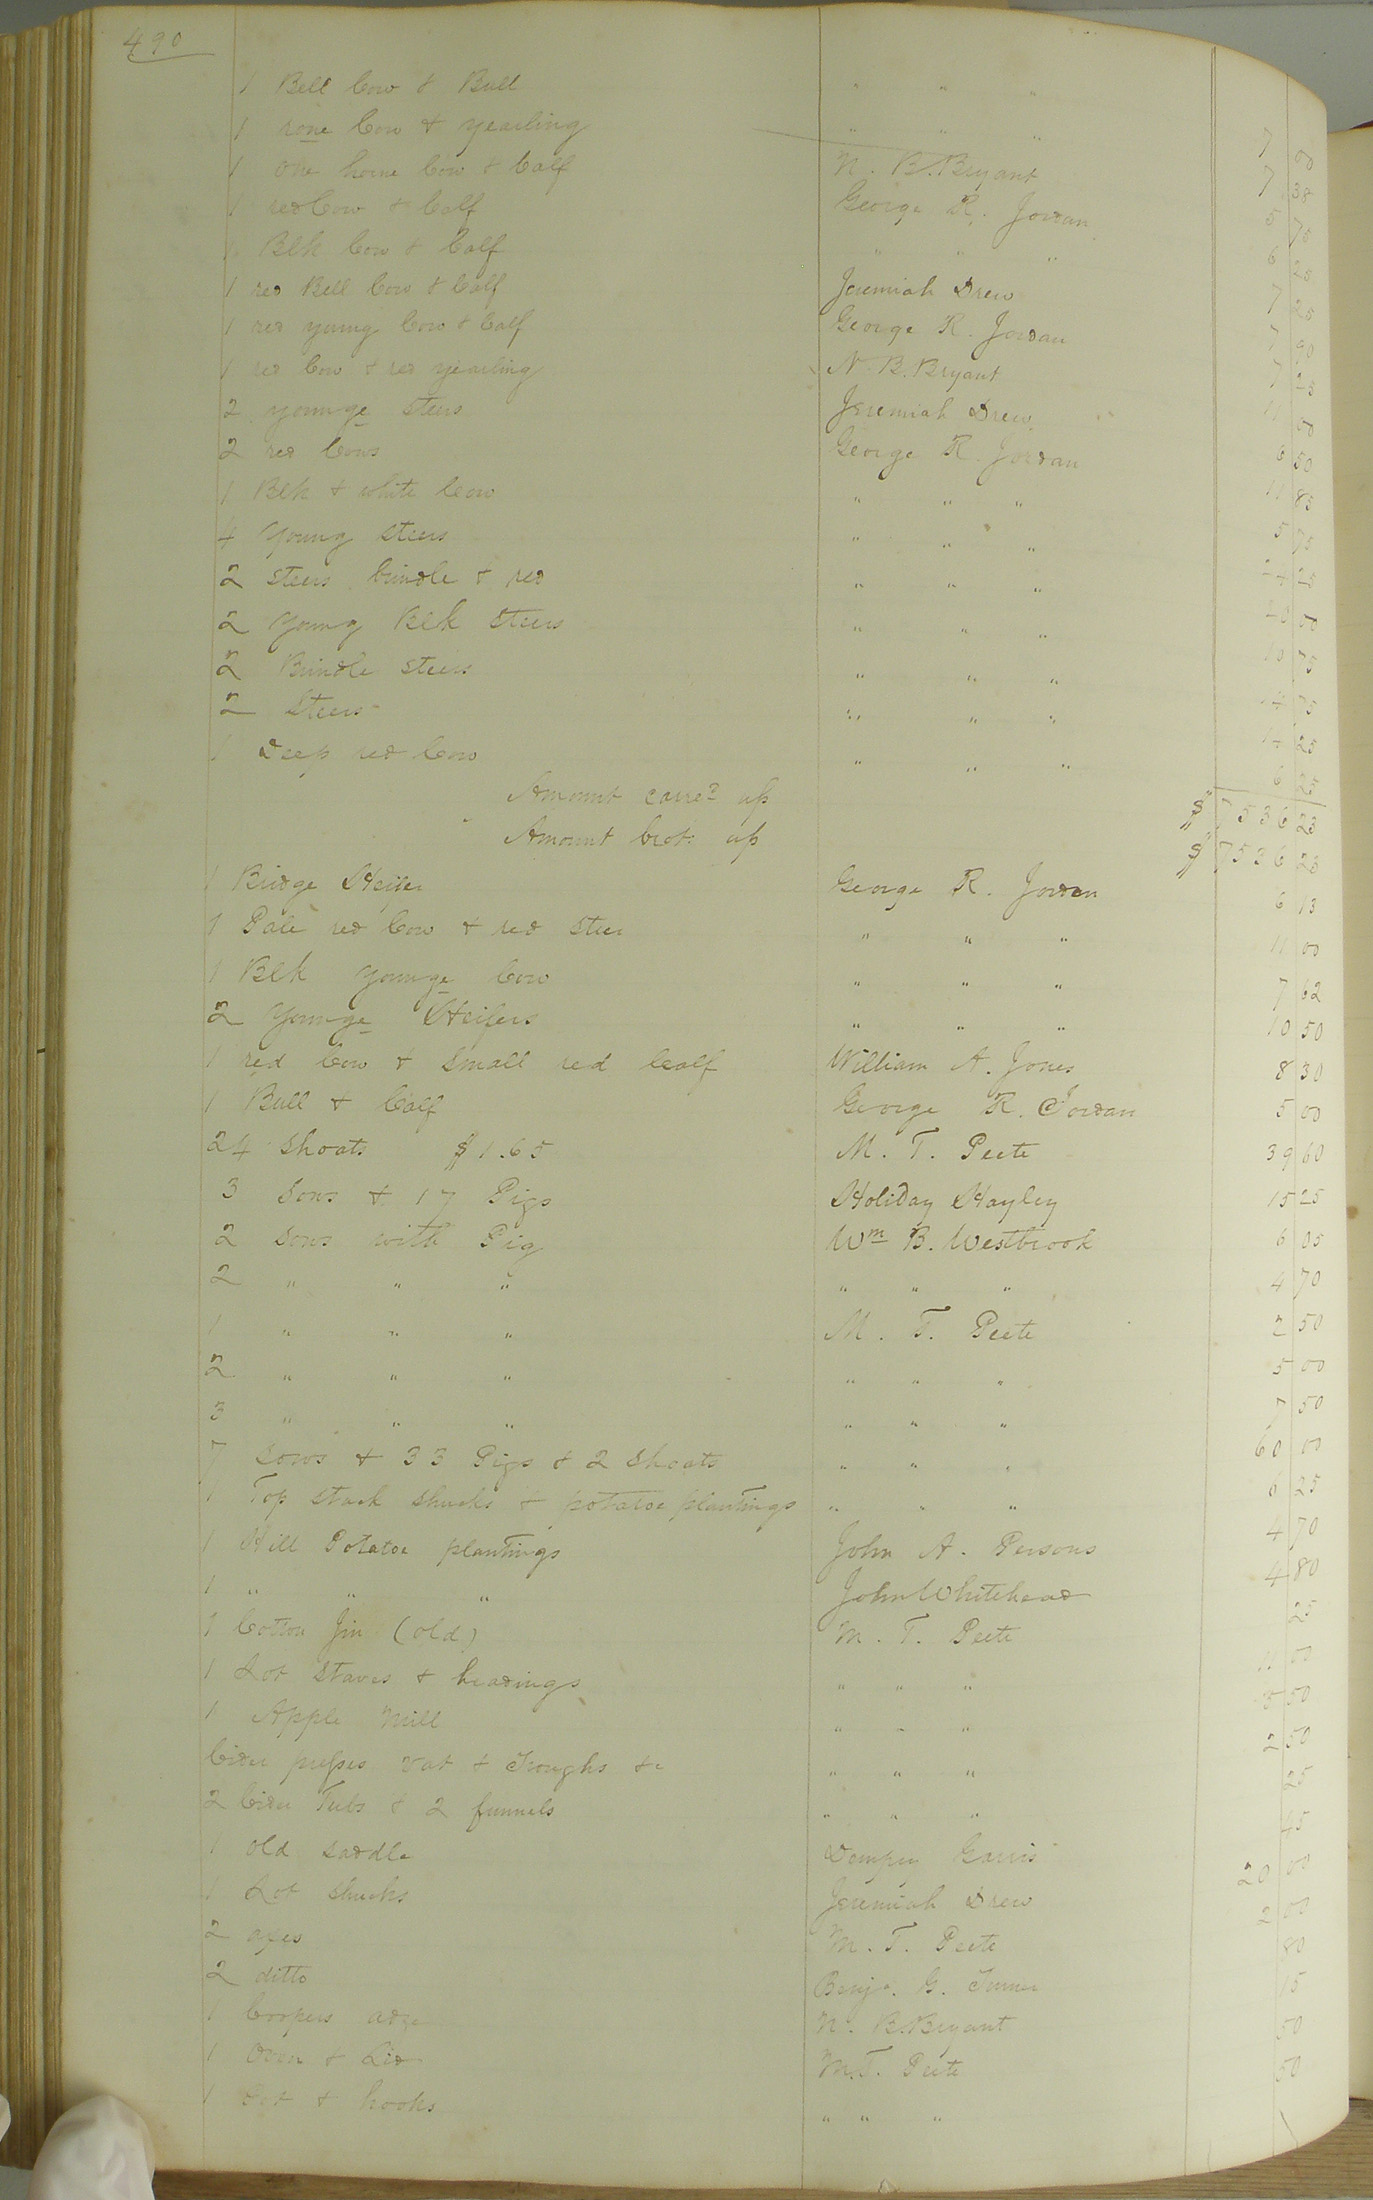 490
1 Bell Cow & Bull " " "
1 rone Cow & yearling " " " 7 00
1 one horne Cow & Calf N. B. Bryant 7 38
1 red Cow & Calf George R. Jordan 5 75
1 Blk Cow & Calf " " " 6 25
1 red Bell Cow & Calf Jeremiah Drew 7 25
1 red young Cow & Calf George R. Jordan 7 90
1 red Cow & red yearling N. B. Bryant 7 25
2 younge steers Jeremiah Drew 11 00
2 red Cows George R. Jordan 6 50
1 Blk & white Cow " " " 11 85
4 Young steers " " " 5 75
2 steers brindle & red " " " 25
2 Young Blk steers " " " 00
2 Brindle steers " " " 10 75
2 Steers " " " 14 75
1 Deep red Cow " " " 14 25
6 25
Amount carred up $ 7536 23
Amount brot up $ 7536 23
1 Bridge Heifer George R. Jordan 6 13
1 Pale red Cow & red steer " " " 11 00
1 Blk younge Cow " " " 7 62
2 Younge Heifers " " " 10 50
1 red Cow & small red Calf William A. Jones 8 30
1 Bull & Calf George R. Jordan 5 00
24 shoats $1.65 M. T. Peete 39 60
3 Sows & 17 Pigs Holiday Hayley 15 25
2 Sows with Pig Wm B. Westbrook 6 05
2 " " " " " " 4 70
1 " " " M. T. Peete 2 50
2 " " " " " " 5 00
3 " " " " " " 7 50
7 Sows & 33 Pigs & 2 Shoats " " " 60 00
1 Top stack shucks & potatoe plantings " " " 6 25
1 Hill Potatoe plantings John A. Persons 4 70
1 " " " John Whitehead 4 80
1 Cotton Jin (old) M. T. Peete 25
1 Lot Staves & headings " " " 11 00
1 Apple Mill " " " 5 50
Cider presses vat & Troughs &c " " " 2 50
2 Cider Tubs & 2 funnels " " " 25
1 old saddle Dempsey Garris 45
1 Lot shucks Jeremiah Drew 20 00
2 axes M. T. Peete 2 00
2 ditto Benja. G. Turner 80
1 Coopers adze N. B. Bryant 15
1 Oven & Lid M. T. Peete 50
1 Pot & hooks " " " 50